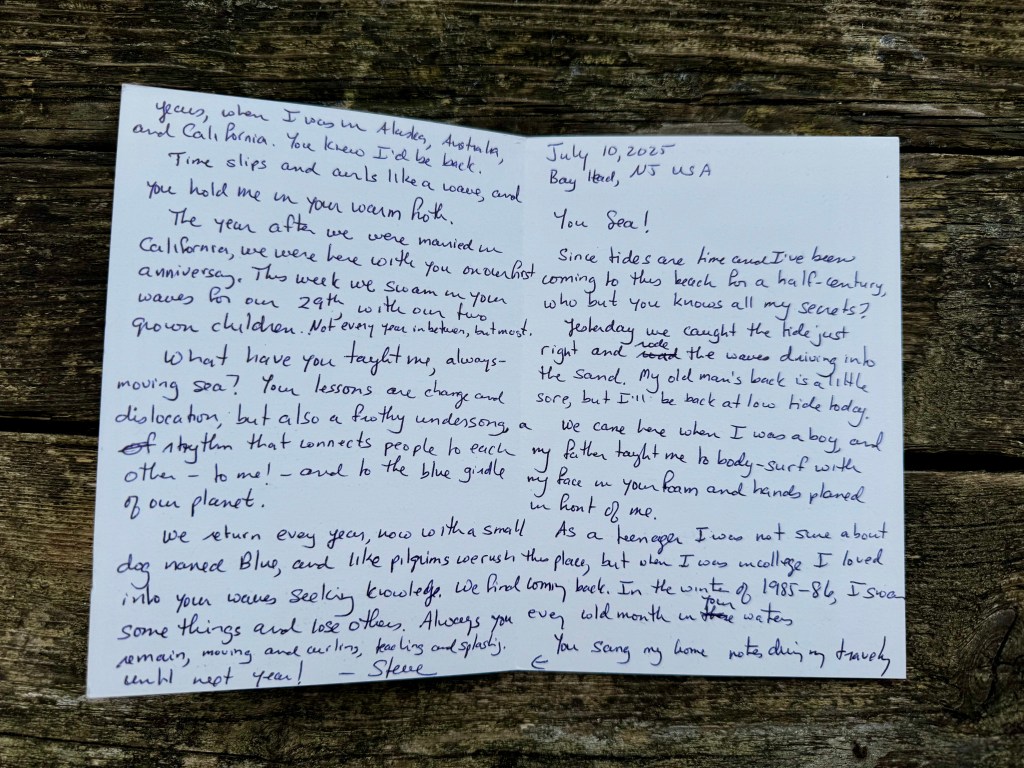 July 10, 2025
Bay Head, NJ USA
You Sea!
Since tides are time and I've been
coming to this beach for a half-century,
who but you knows all my secrets?
Yesterday we caught the tide just
right and rode the waves driving into
the sand. My old man's back is a little
sore, but I'll be back at low tide today.
We came here when I was a boy, and
my father taught me to body-surf with
my face in your foam and hands planed
in front of me.
As a teenager I was not sure about
this place, but when I was in college I loved
coming back. In the winter of 1985-86, I swam
every cold month in your waters
You sang my home notes during my travely
years, when I was in Alaska, Australia,
and California. You knew I'd be back.
Time slips and curls like a wave, and
you hold me in your warm froth.
The year after we were married in
California, we were here with you on our first
anniversary. This week we swam in your
waves for our 29th, with our two
grown children. Not every year in between, but most.
What have you taught me, always-
moving sea? Your lessons are change and
dislocation, but also a frothy undersong, a
rhythm that connects people to each
other - to me! - and to the blue girdle
of our planet.
We return every year, now with a small
dog named Blue, and like pilgrims we rush
into your waves seeking knowledge. We find
some things and lose others. Always you
remain, moving and curling, teaching and splashing.
until next year! - Steve